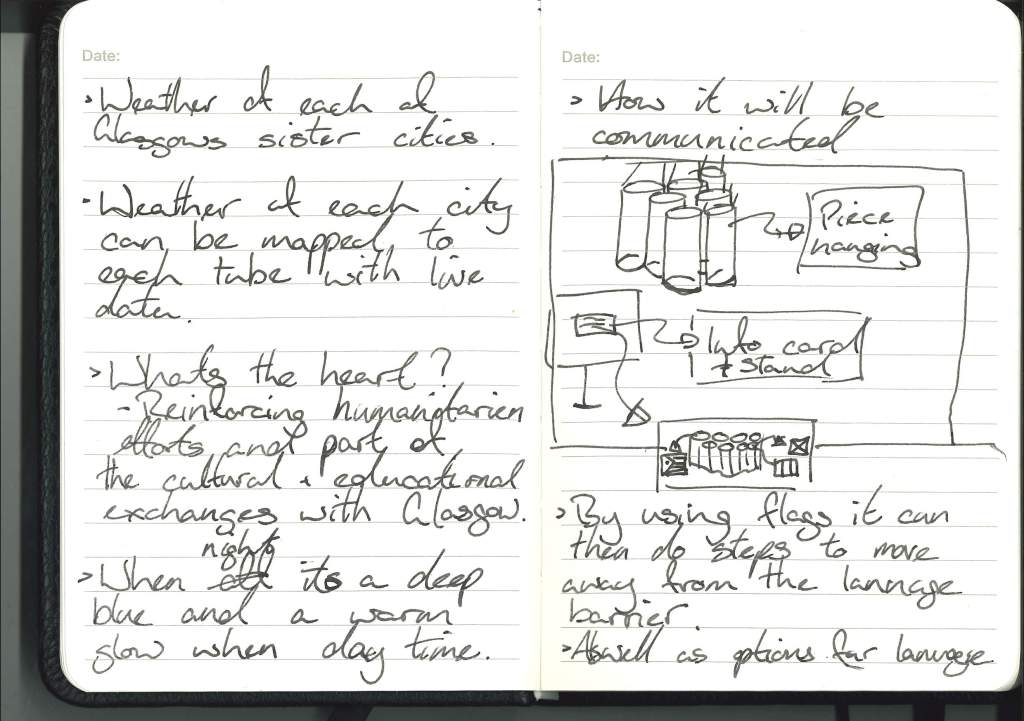 Date:
> Weather of each of
Glasgows sister cities.
- Weather of each city
can be mapped to
each tube with live
data.
> Whats the heart?
- Reinforcing humanitarien
efforts and part of
the cultural + educational
exchanges with Glasgow.
night
> When its a deep
blue and a warm
glow when day time.
Date:
> How it will be
communicated
Piece
hanging
Info card
+ stand
> By using flags it can
then do steps to move
away from the lannage
barrier.
> Aswell as options for lanugege